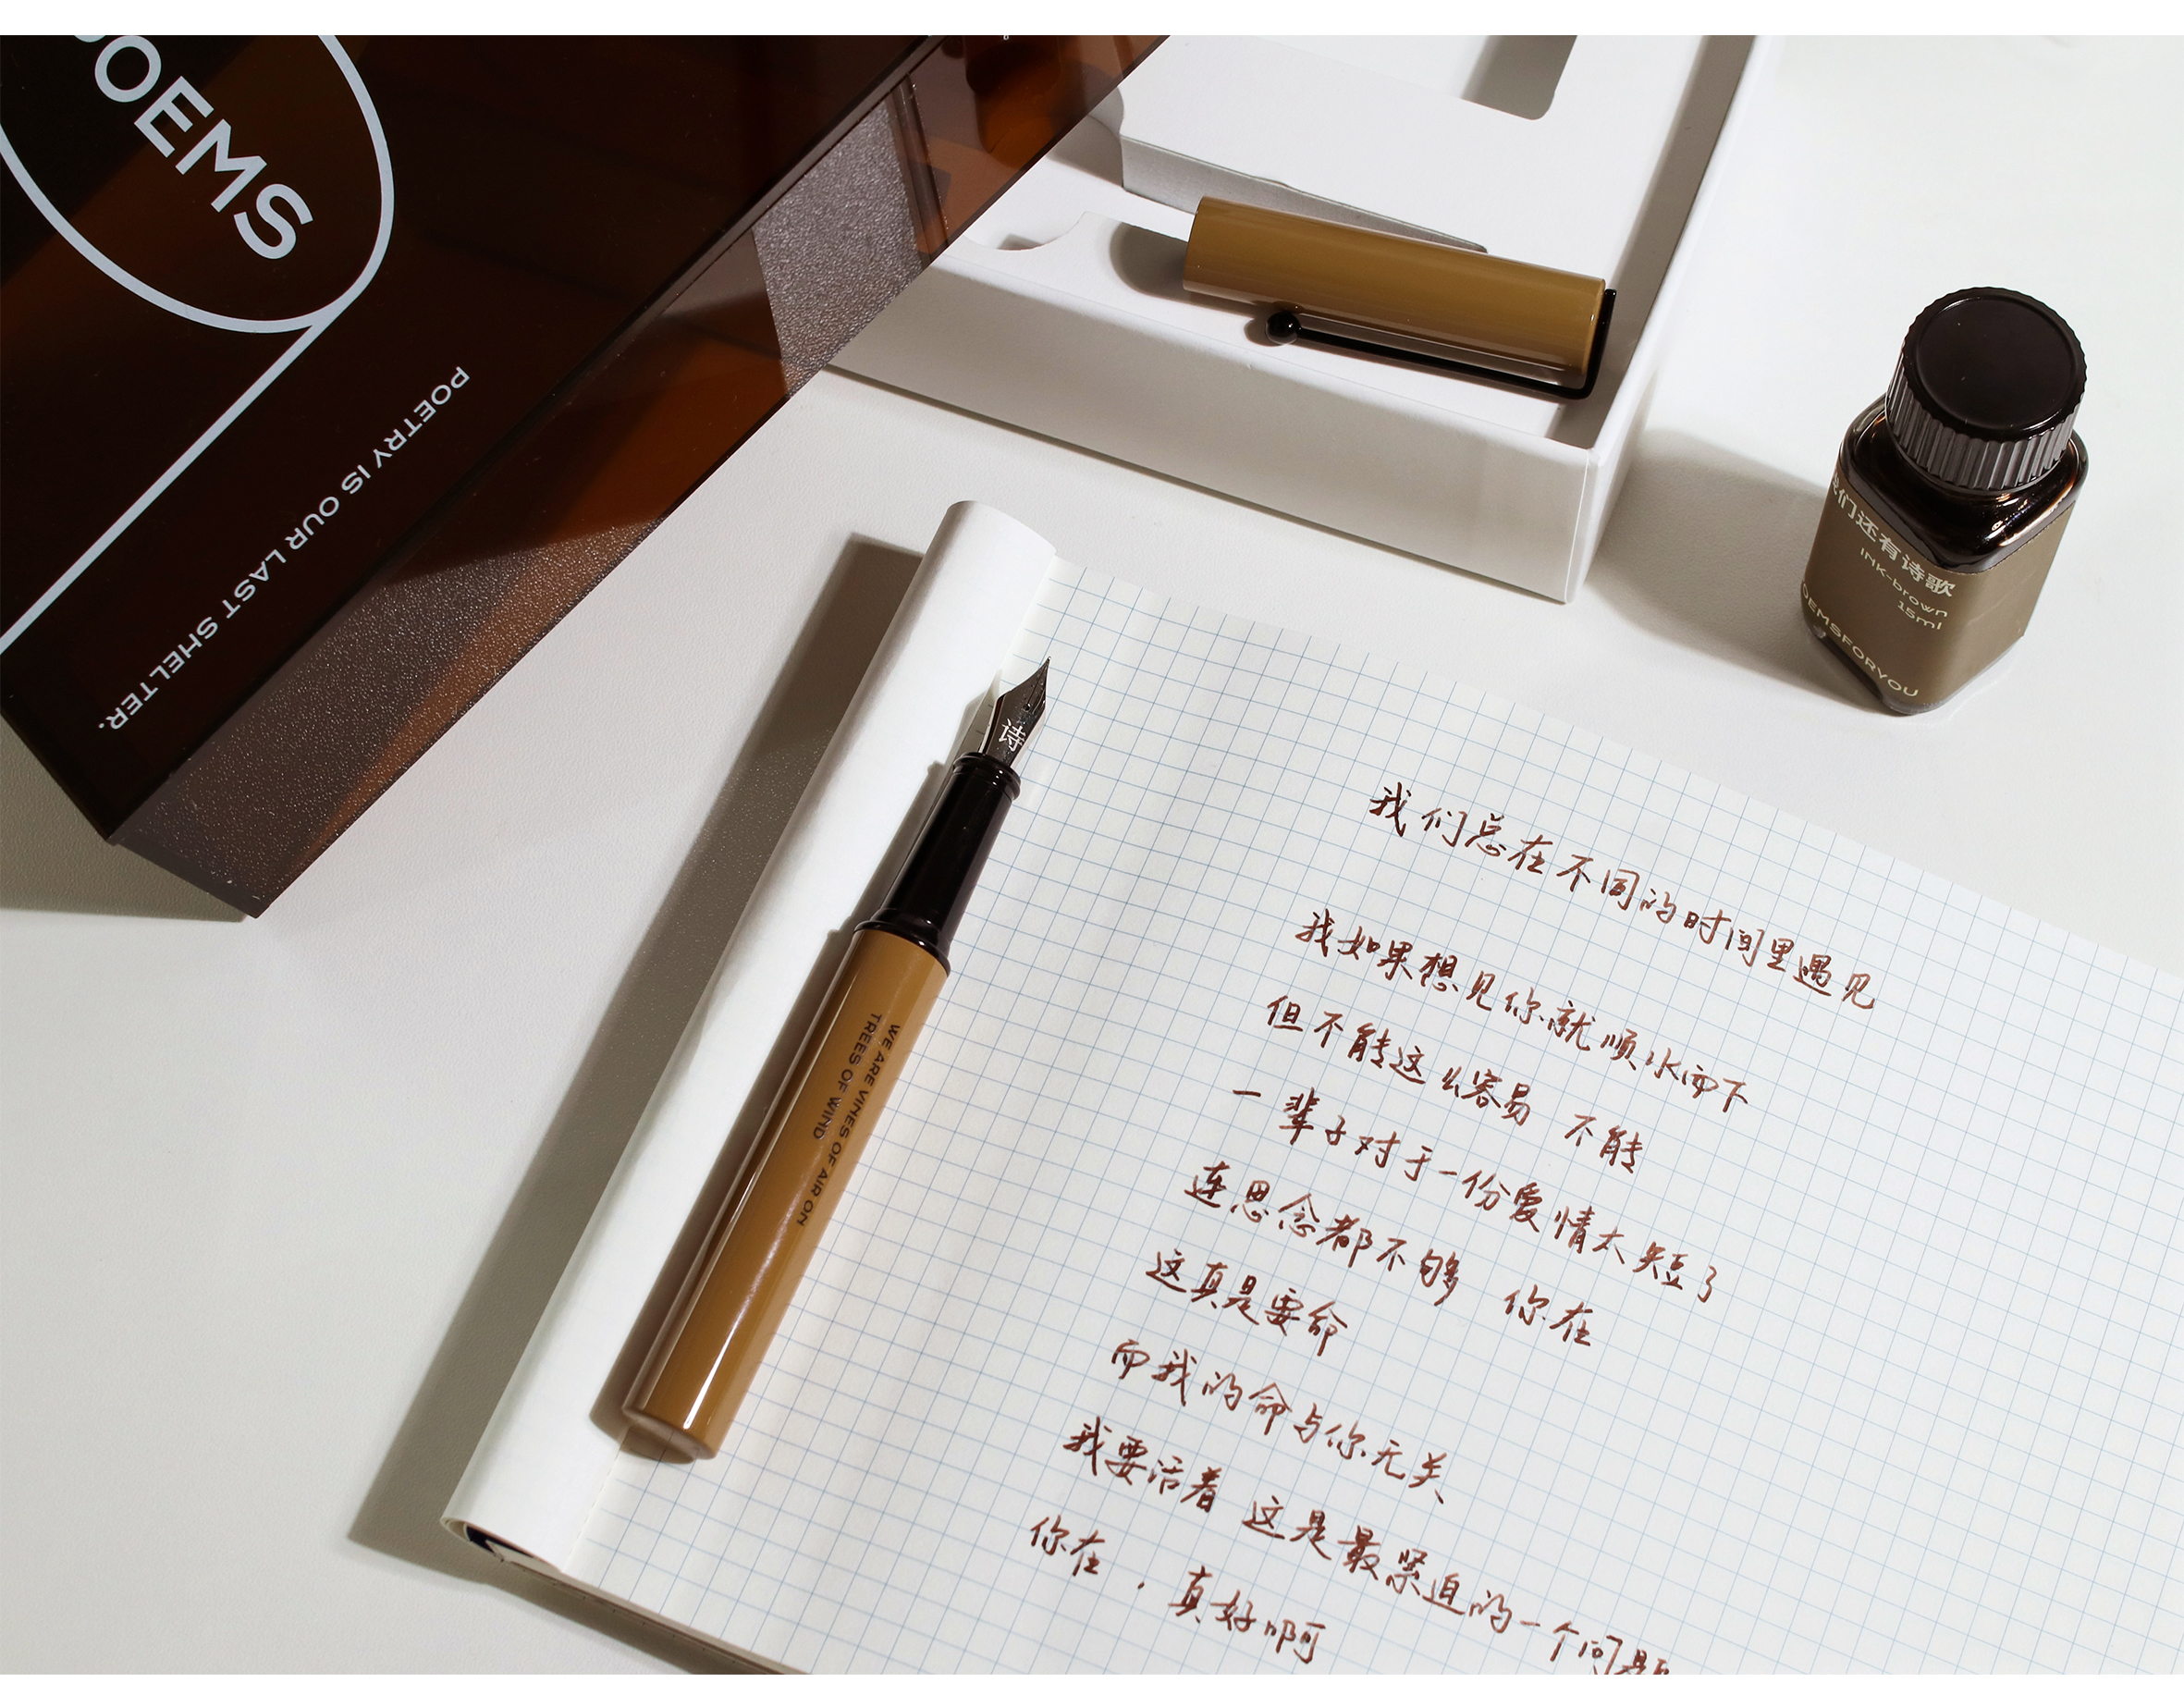 OEMS
POETRY IS OUR LAST SHELTER.
们还有诗歌
INK-brown
15ml
OEMSFORYOU
诗
WE ARE VINES OF AIR ON
TREES OF WIND
我们总在不同的时间里遇见
我如果想见你就顺水而下
但不能这么容易 不能
一辈子对于一份爱情太短了
连思念都不够 你在
这真是要命
而我的命与你无关
我要活着 这是最紧迫的一个问题
你在，真好啊